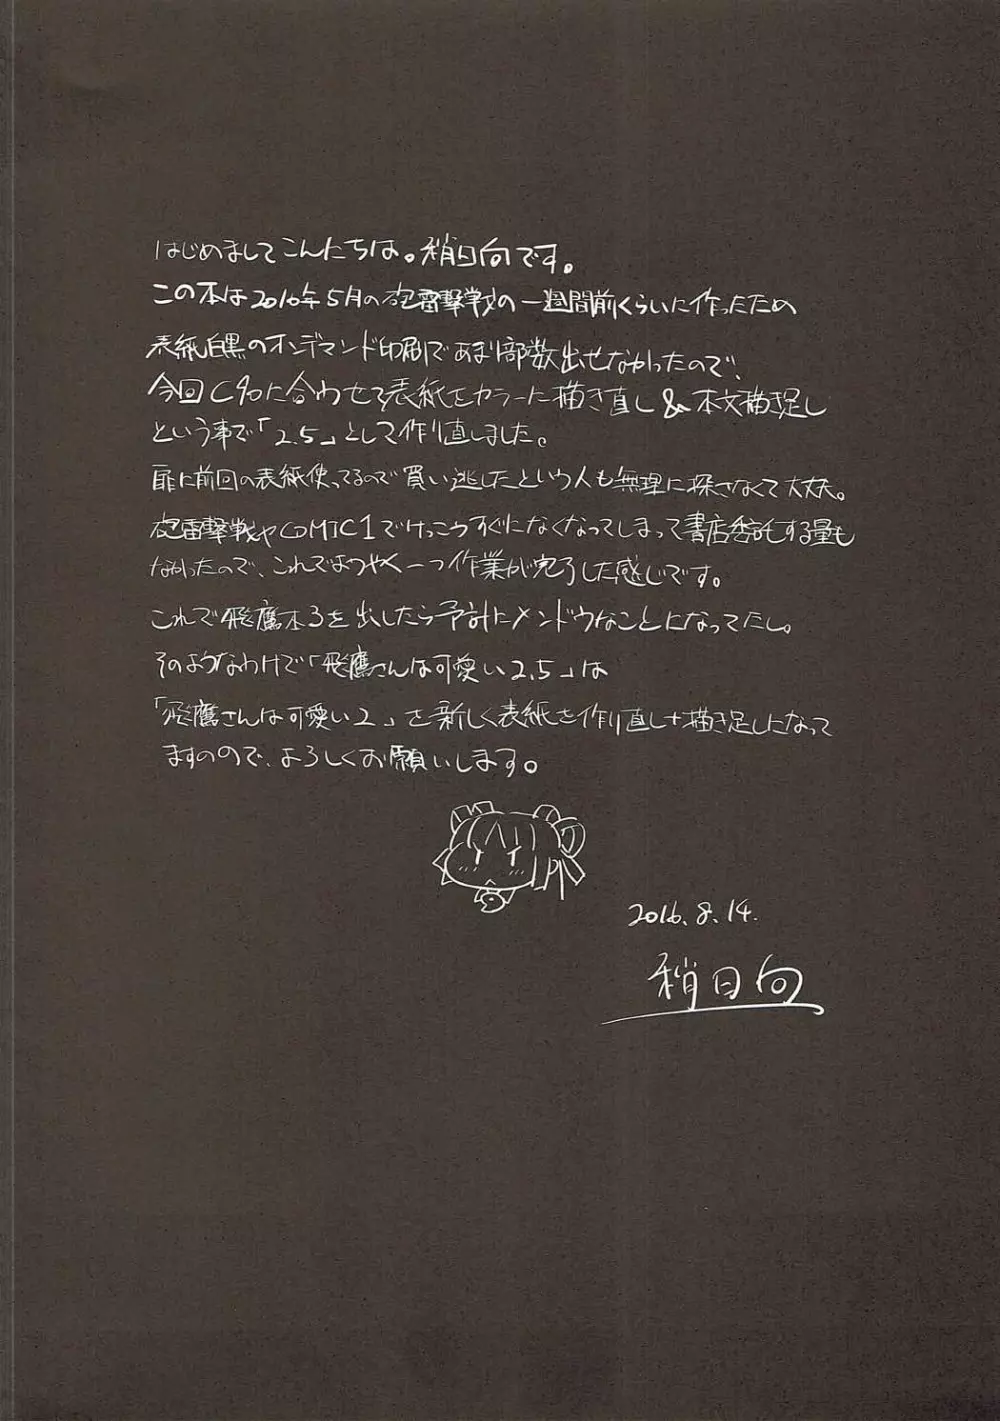 はじめましてこんにちは。稍日向です。
この本は2016年5月の砲雷撃戦の一週間前くらいに作ったため
表紙白黒のオンデマンド印刷であまり部数出せなかったので、
今回C90に合わせて表紙をカラーに描き直し&本文描き足し
という事で「2.5」として作り直しました。
扉に前回の表紙使ってるので買い逃したという人も無理に探さなくて大丈夫。
砲雷撃戦やCOMIC1でけっこうすぐになくなってしまって書店委託する量も
なかったので、これでようやく一つ作業が完了した感じです。
これで飛鷹本3を出したら余計にメンドウなことになってたし。
そのようなわけで「飛鷹さんは可愛い2.5」は
「飛鷹さんは可愛い2」を新しく表紙を作り直し+描き足しになって
ますののでよろしくお願いします。
2016.8.14.
稍日向